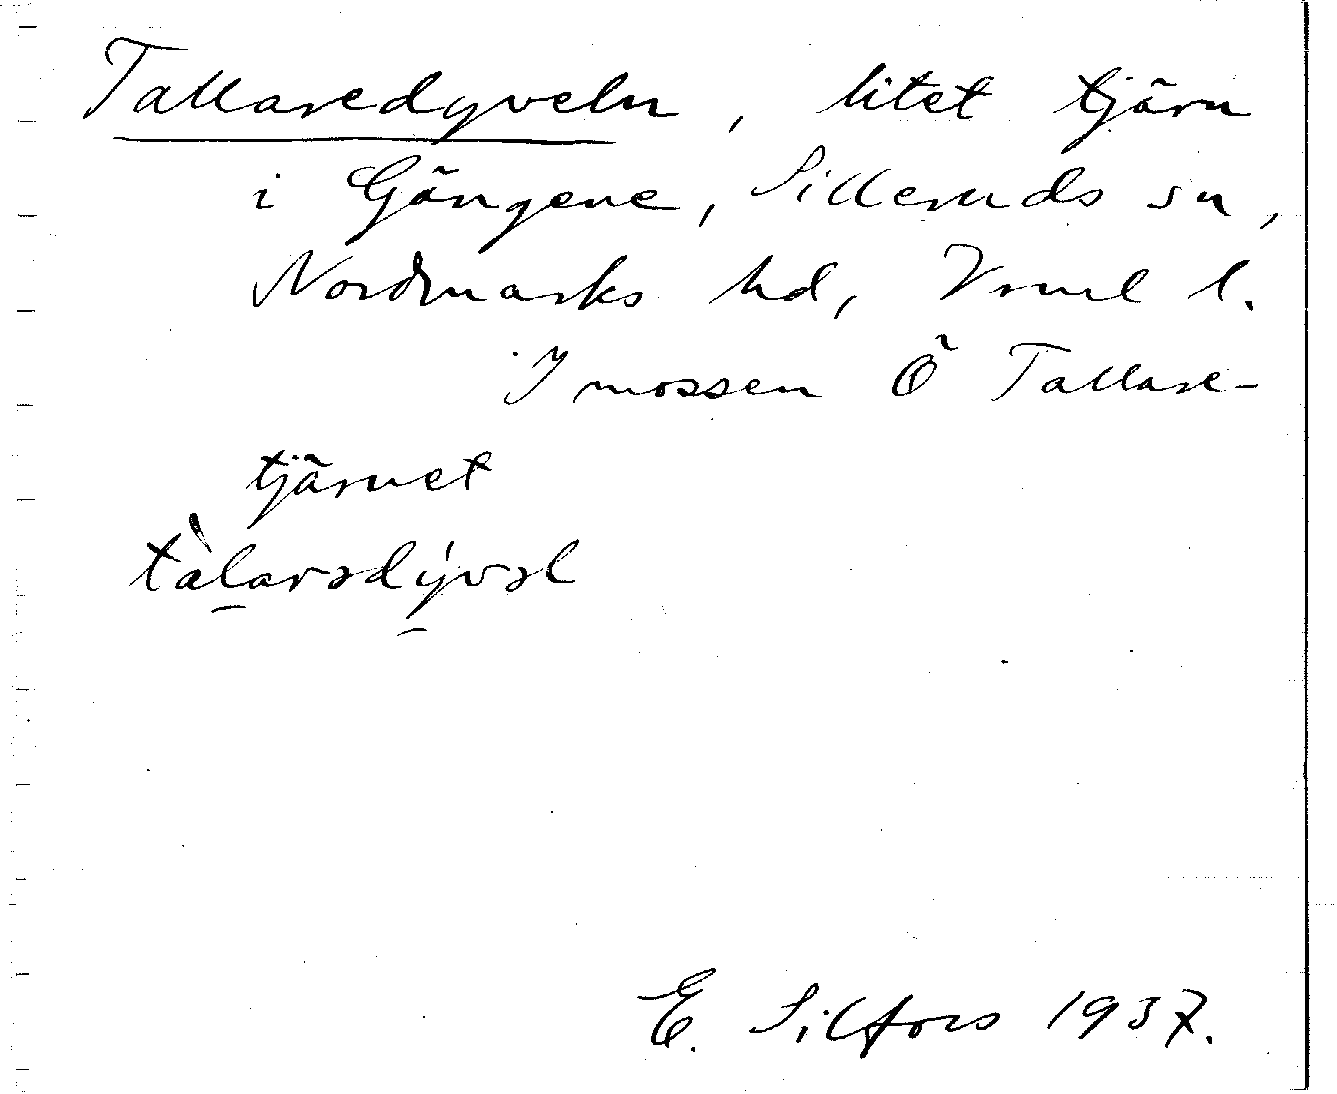 Tallaredyveln, litet tjärn
i Gängene, Silleruds sn,
Nordmarks hd, Vrml l.
I mossen Ö Tallare-
tjärnet
tàlarədývəl
E. Silfors 1937.